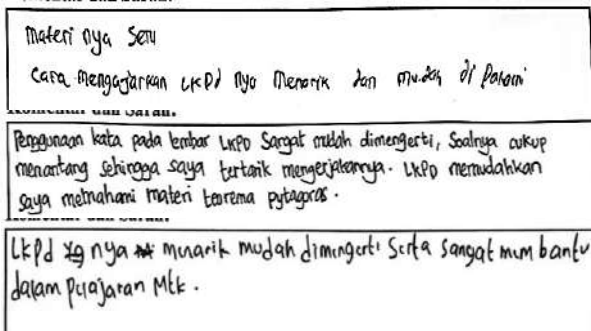 materi nya seru
cara mengajarkan LKPd nya menarik dan mudah di pahami
Komentar dan Saran:
Penggunaan kata pada lembar LKPD sangat mudah dimengerti, Soalnya cukup
menantang sehingga saya tertarik mengerjakannya. LKPD memudahkan
saya memahami materi teorema pytagoras.
LKPd nya menarik mudah dimengerti serta sangat mem bantu
dalam pelajaran Mtk.